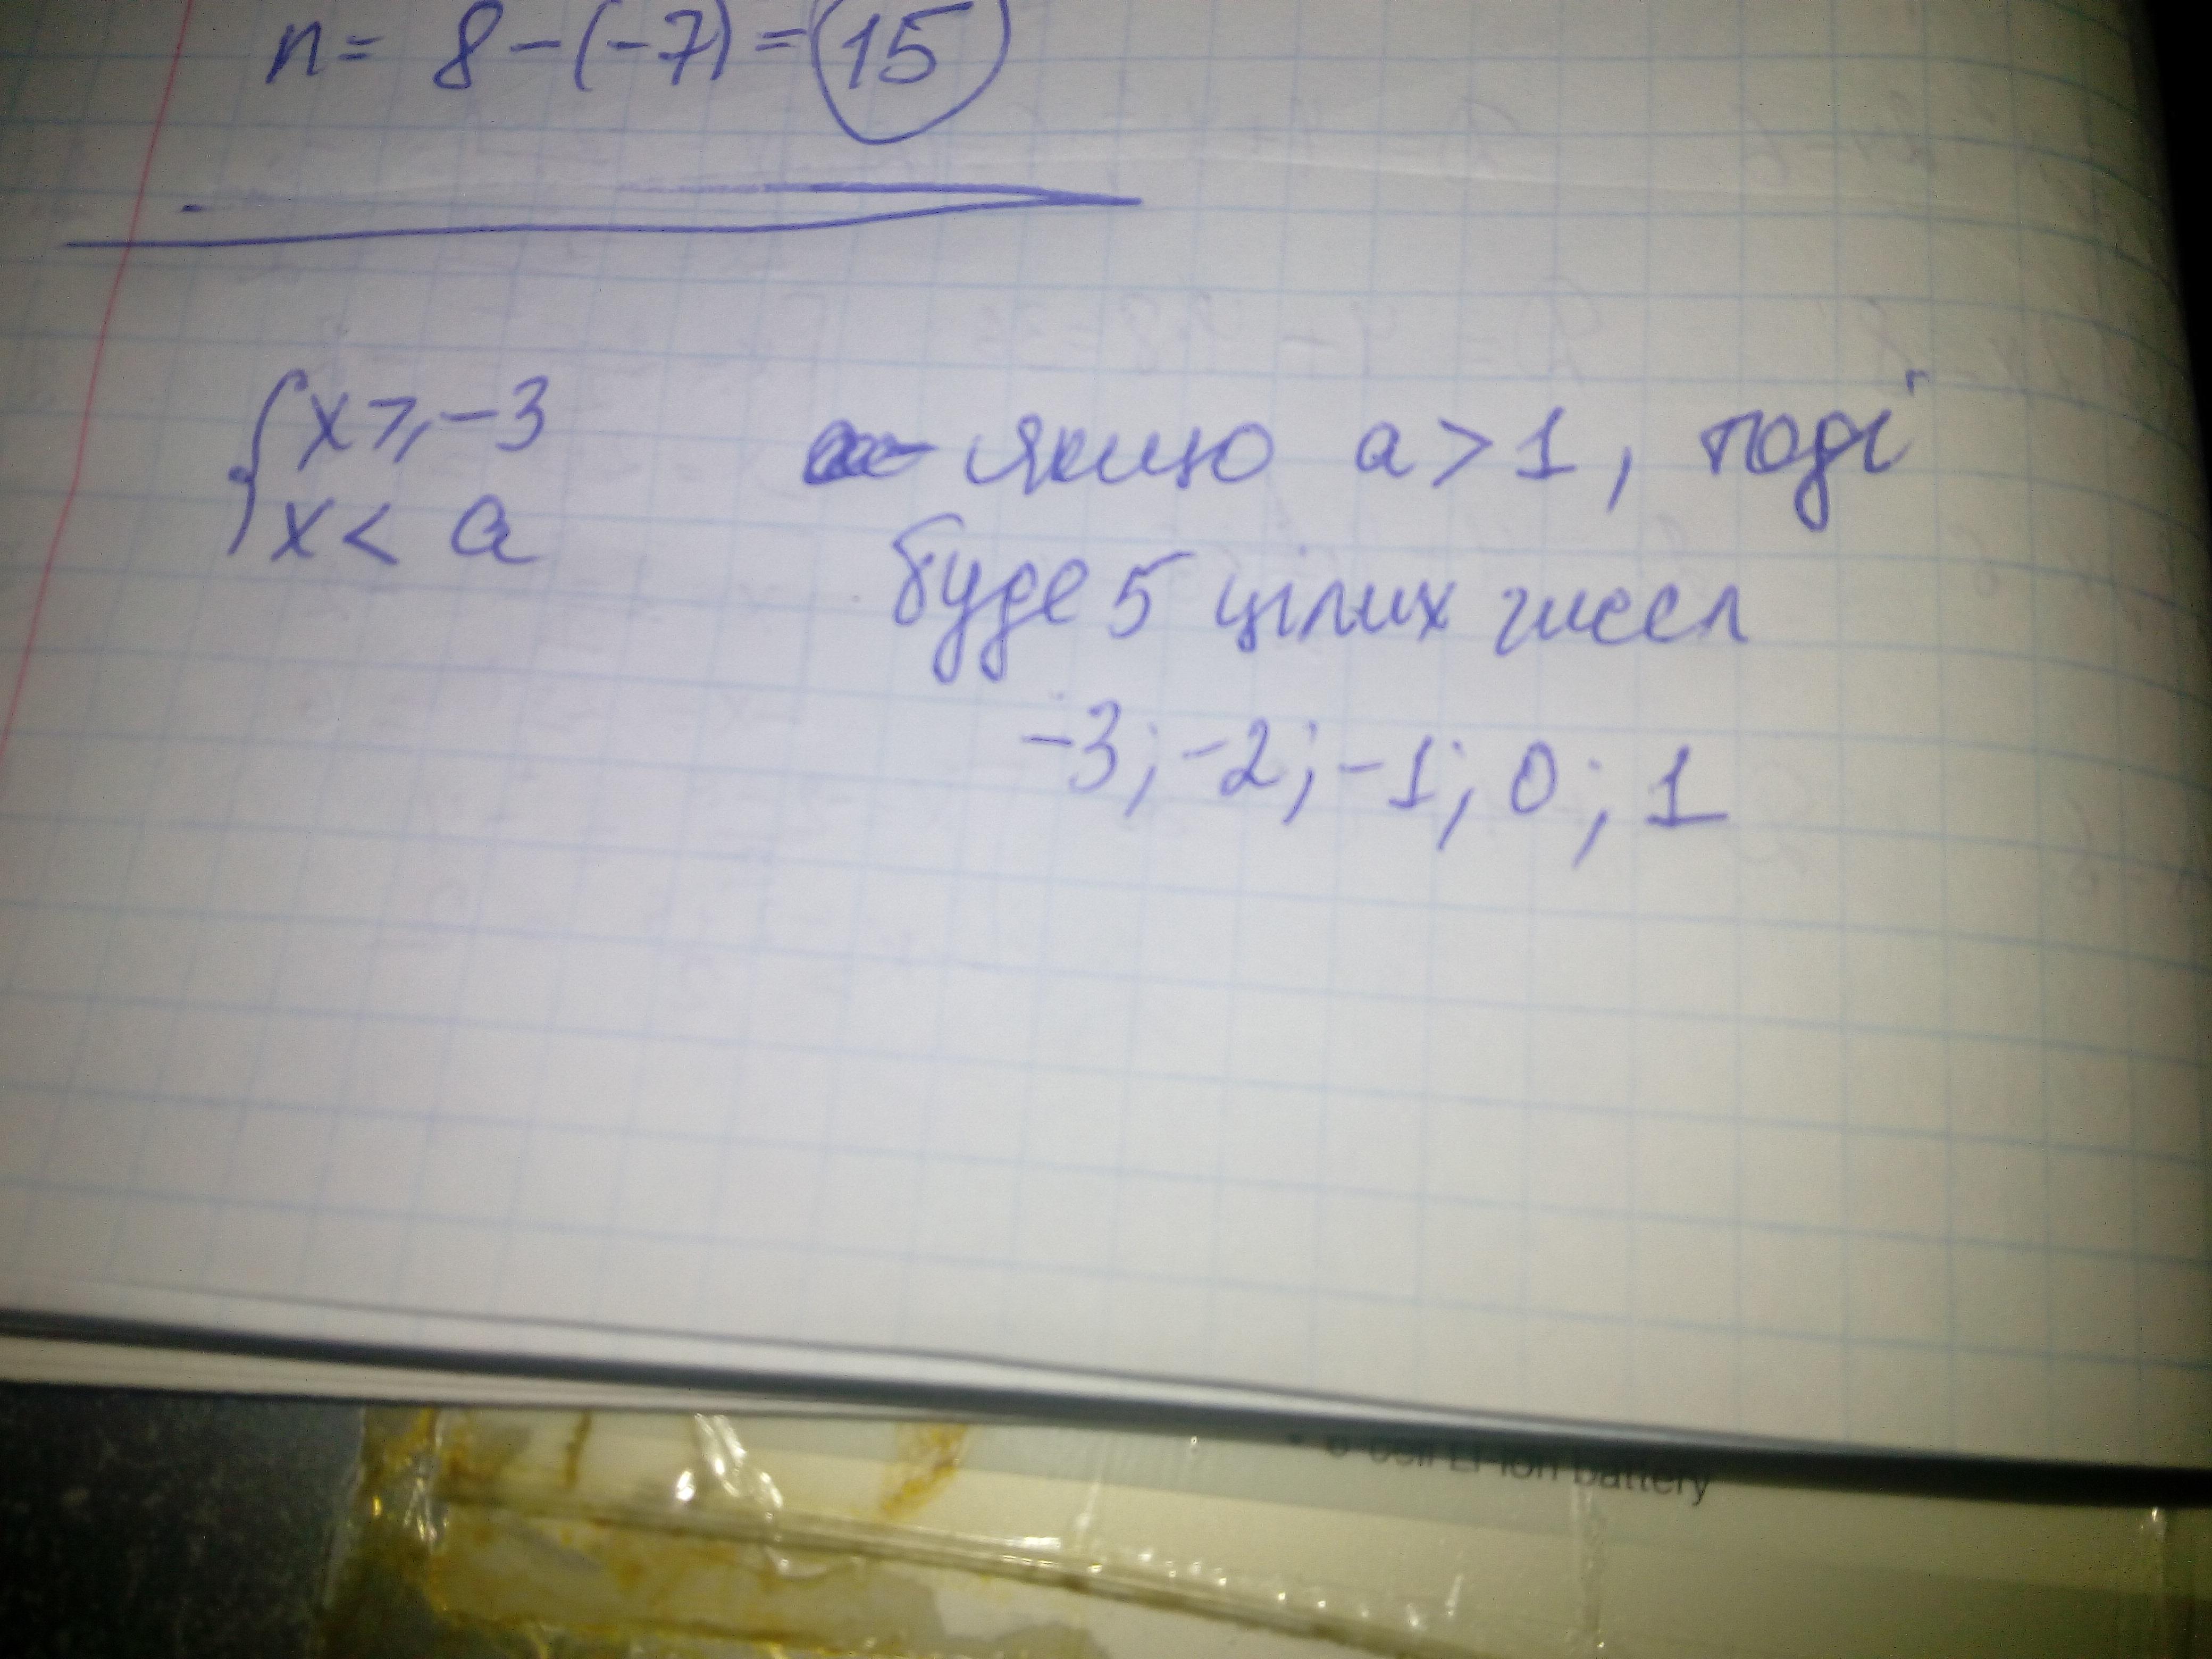 n = 8 - (-7) = 15
{ x ≥ -3
x < a
якщо a > 1, тоді
буде 5 цілих чисел
-3; -2; -1; 0; 1
6-cell Li-ion battery